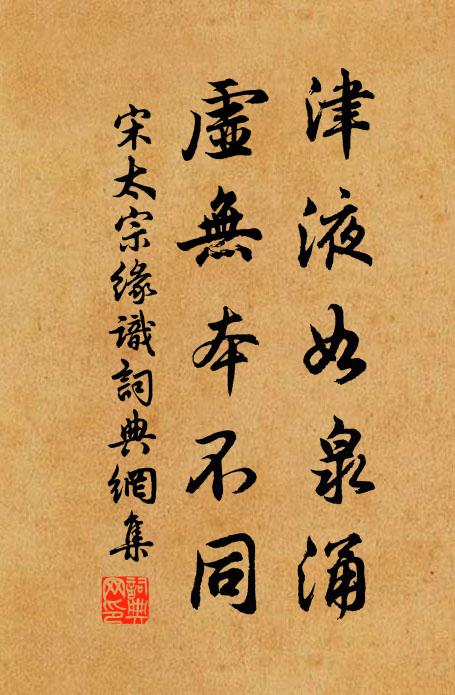 津液如泉涌
虛無本不同
宋太宗緣識詞典網集
詞典网印